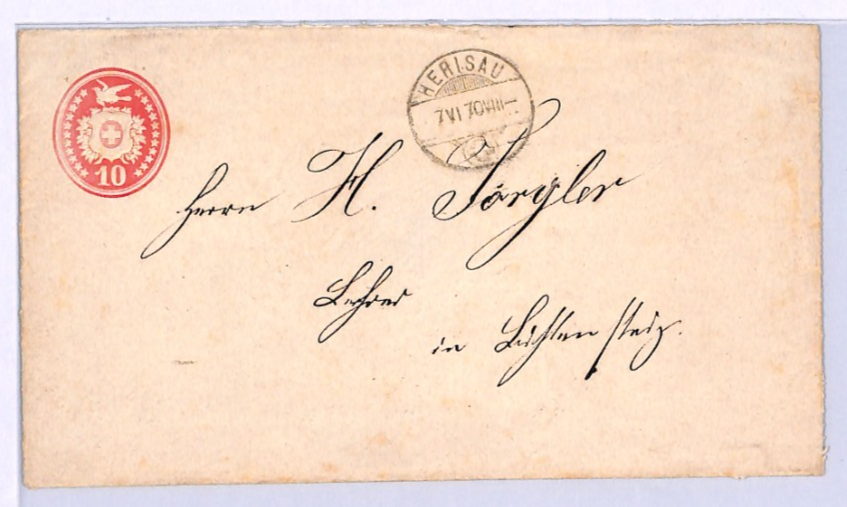 HERISAU
7 VI 70 VIII–
10
Herrn H.
Lehrer
in Lichtensteig.